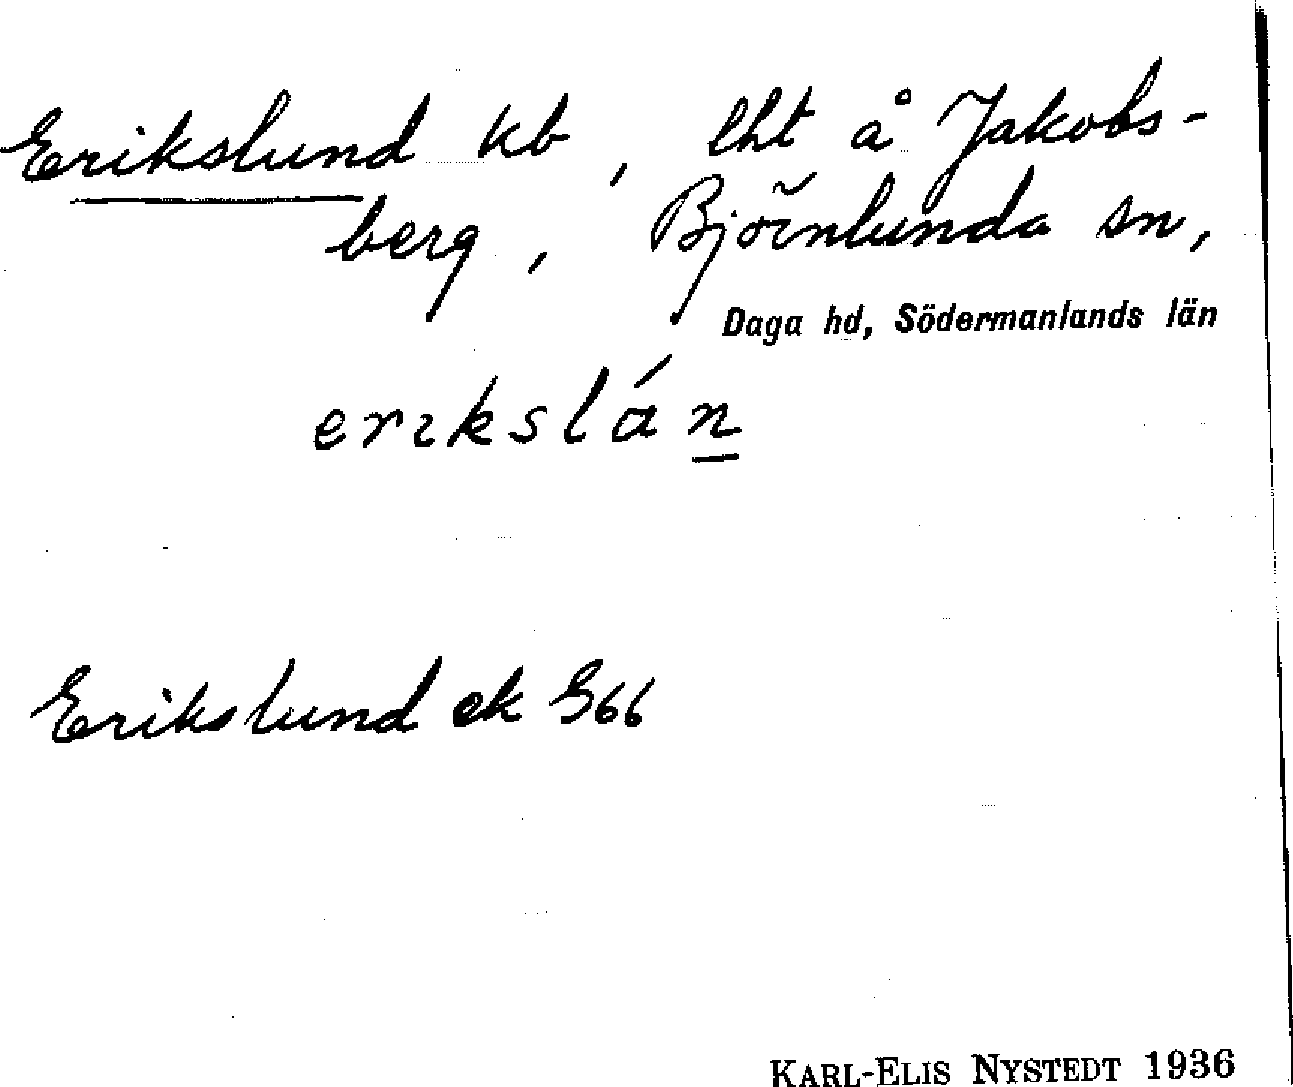 Erikslund kb, lht å Jakobs-
berg, Björnlunda sn,
Daga hd, Södermanlands län
erıkslán
Erikslund ek S66
KARL-ELIS NYSTEDT 1936